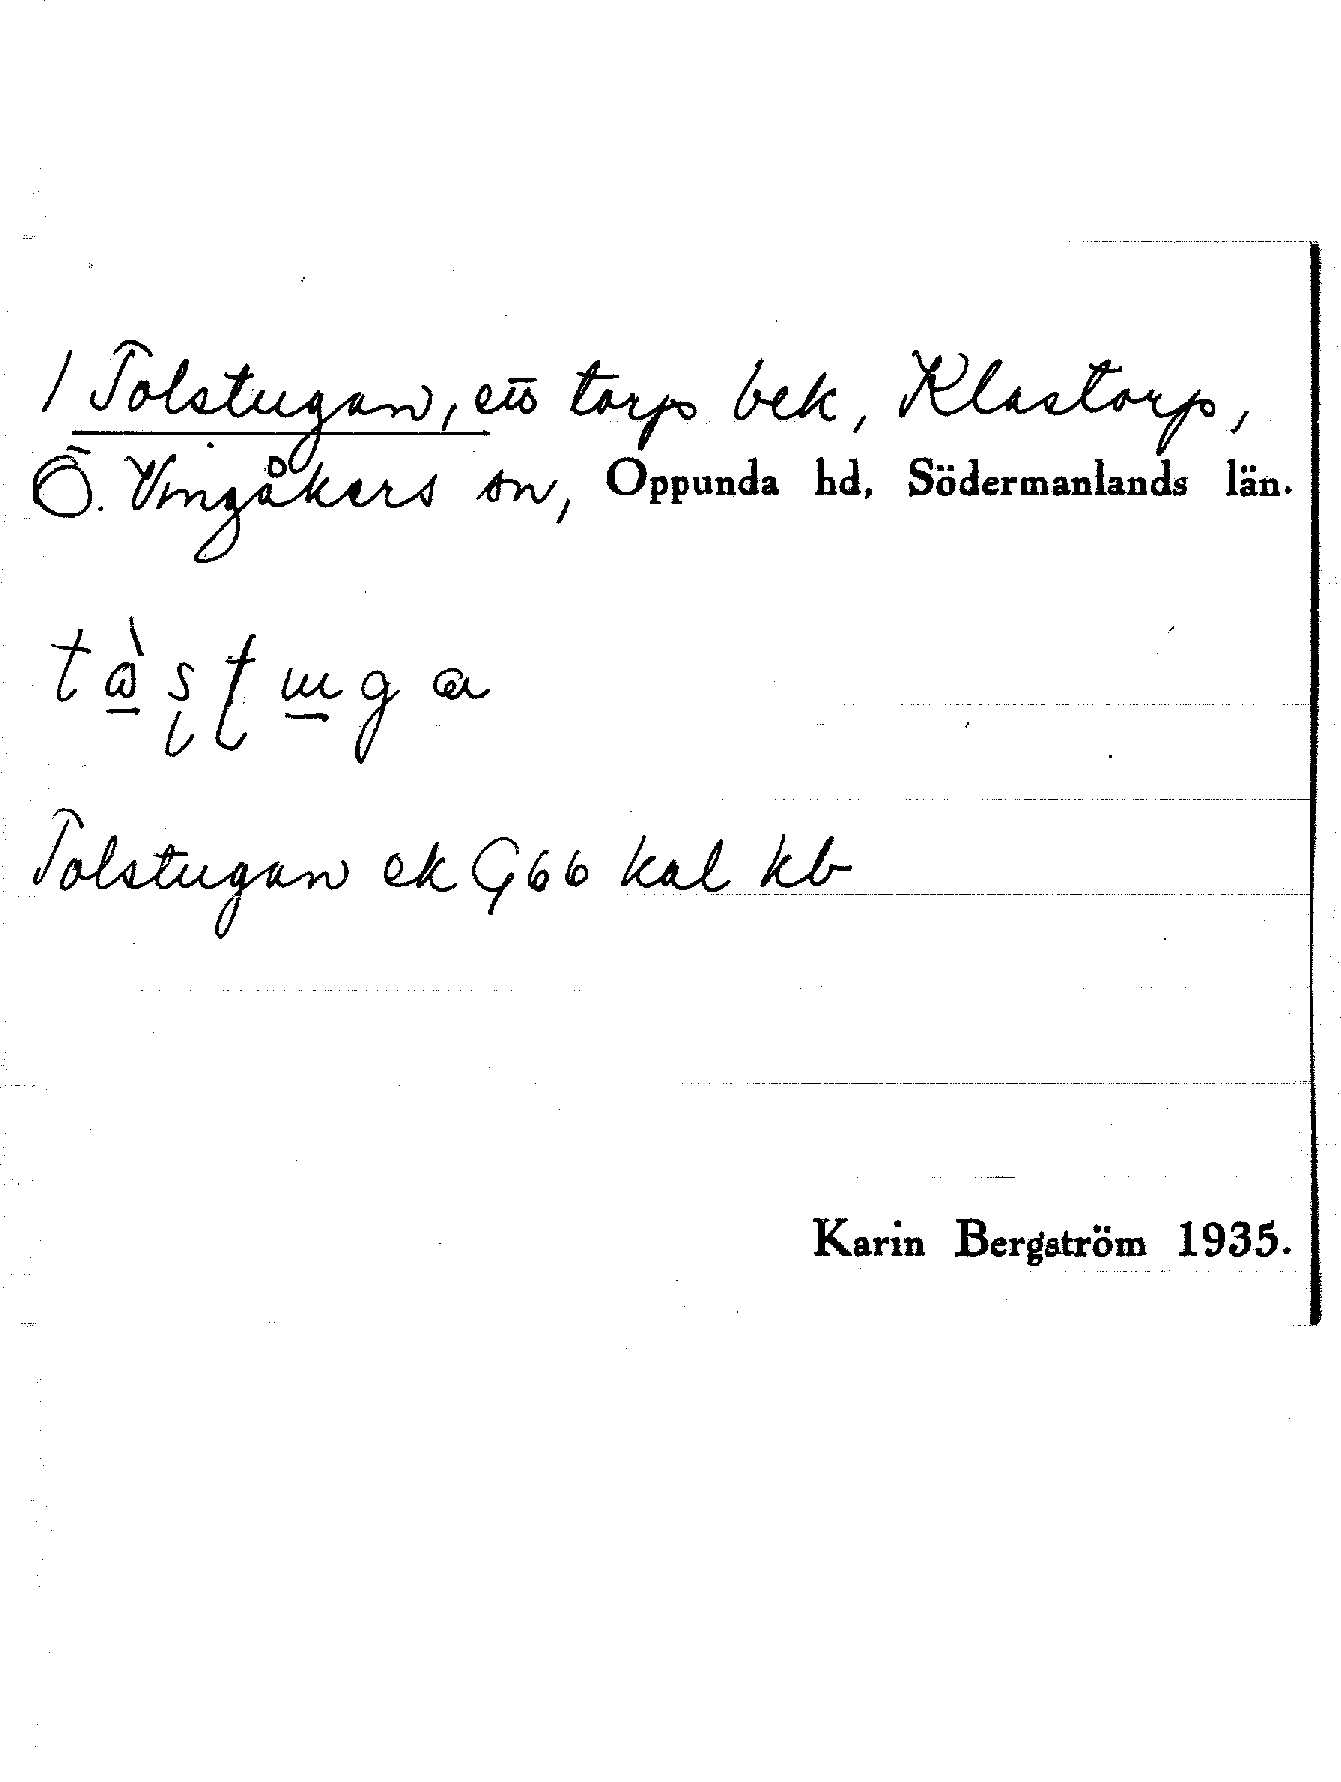 1 Tolstugan, ett torp bek, Klastorp,
Ö. Vingåkers sn, Oppunda hd, Södermanlands län.
Tolstugan ek G66 kal kb
Karin Bergström 1935.